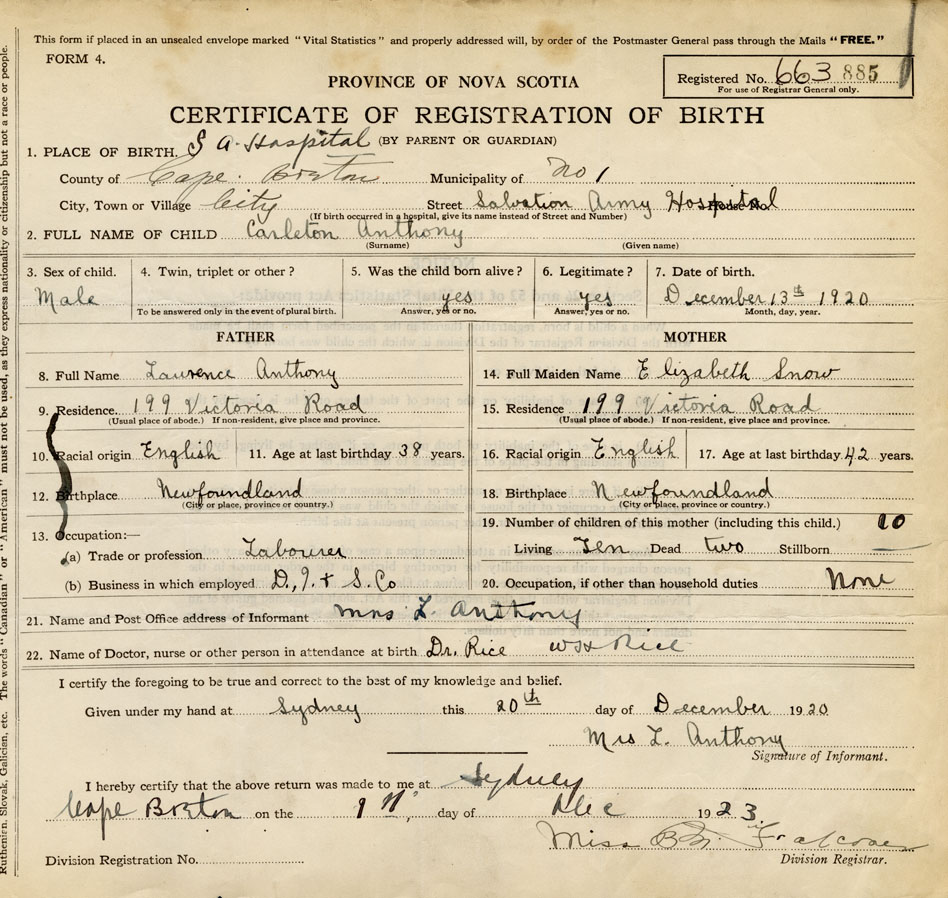 This form if placed in an unsealed envelope marked "Vital Statistics" and properly addressed will, by order of the Postmaster General pass through the Mails "FREE."
FORM 4.
Registered No. 663 885
For use of Registrar General only.
PROVINCE OF NOVA SCOTIA
CERTIFICATE OF REGISTRATION OF BIRTH
(BY PARENT OR GUARDIAN)
1. PLACE OF BIRTH. S A. Hospital
County of Cape Breton Municipality of No 1
City, Town or Village City Street Salvation Army Hospital
(If birth occurred in a hospital, give its name instead of Street and Number)
2. FULL NAME OF CHILD Carleton Anthony
(Surname) (Given name)
3. Sex of child. 4. Twin, triplet or other? 5. Was the child born alive? 6. Legitimate? 7. Date of birth.
Male yes yes December 13th 1920
To be answered only in the event of plural birth. Answer, yes or no. Answer, yes or no. Month, day, year.
FATHER MOTHER
8. Full Name Laurence Anthony 14. Full Maiden Name Elizabeth Snow
9. Residence. 199 Victoria Road 15. Residence 199 Victoria Road
(Usual place of abode.) If non-resident, give place and province. (Usual place of abode.) If non-resident, give place and province.
10. Racial origin English 11. Age at last birthday 38 years. 16. Racial origin English 17. Age at last birthday 42 years.
12. Birthplace Newfoundland 18. Birthplace Newfoundland
(City or place, province or country.) (City or place, province or country.)
13. Occupation:— 19. Number of children of this mother (including this child.) 10
(a) Trade or profession Labourer Living Ten Dead two Stillborn —
(b) Business in which employed D. I. + S. Co 20. Occupation, if other than household duties None
21. Name and Post Office address of Informant Mrs L. Anthony
22. Name of Doctor, nurse or other person in attendance at birth Dr. Rice Rice
I certify the foregoing to be true and correct to the best of my knowledge and belief.
Given under my hand at Sydney this 20th day of December 1920
Mrs L. Anthony
Signature of Informant.
I hereby certify that the above return was made to me at Sydney
Cape Breton on the day of Dec 1923
Miss
Division Registration No. Division Registrar.
Ruthenian, Slovak, Galician, etc. The words "Canadian" or "American" must not be used, as they express nationality or citizenship but not a race or people.